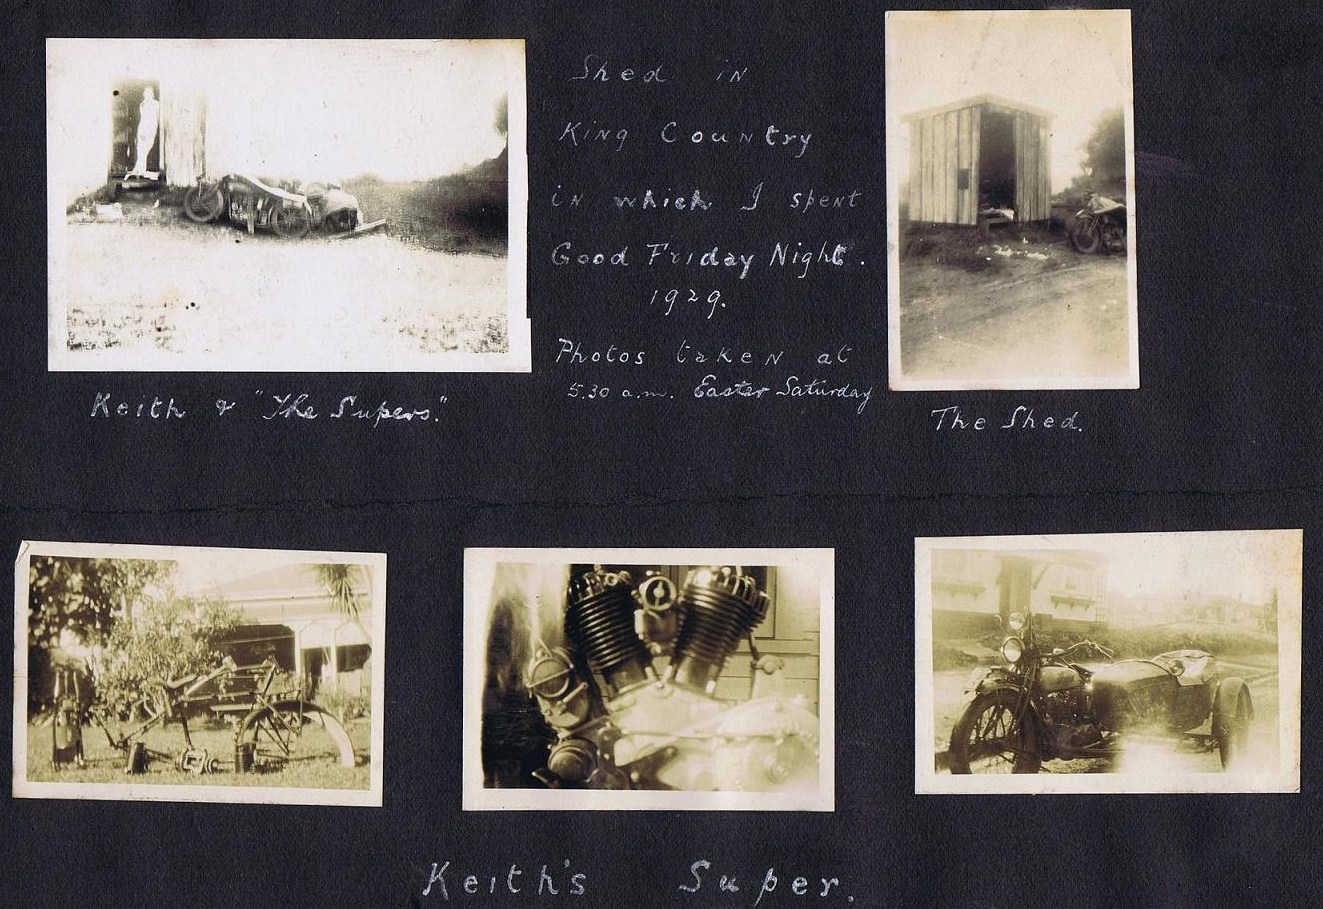 Shed in
King Country
in which I spent
Good Friday Night.
1929.
Photos taken at
5.30 a.m. Easter Saturday
Keith & "The Supers."
The Shed.
Keith's Super.